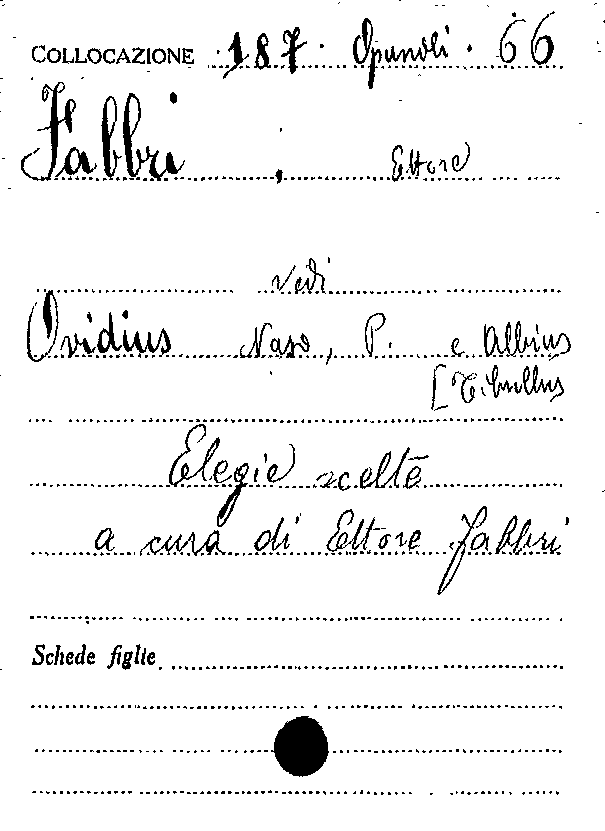 COLLOCAZIONE 187. Opuscoli. 66
Fabbri, Ettore
Vedi
Ovidius Naso, P. e Albius
[Tibullus
Elegie scelte
a cura di Ettore Fabbri
Schede figlie